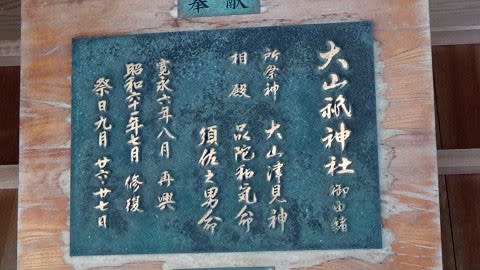 奉献
大山祇神社 御由緒
所祭神 大山津見神
相殿 品陀和気命
須佐之男命
寛永六年八月 再興
昭和六十一年七月 修復
祭日九月 廿六廿七日